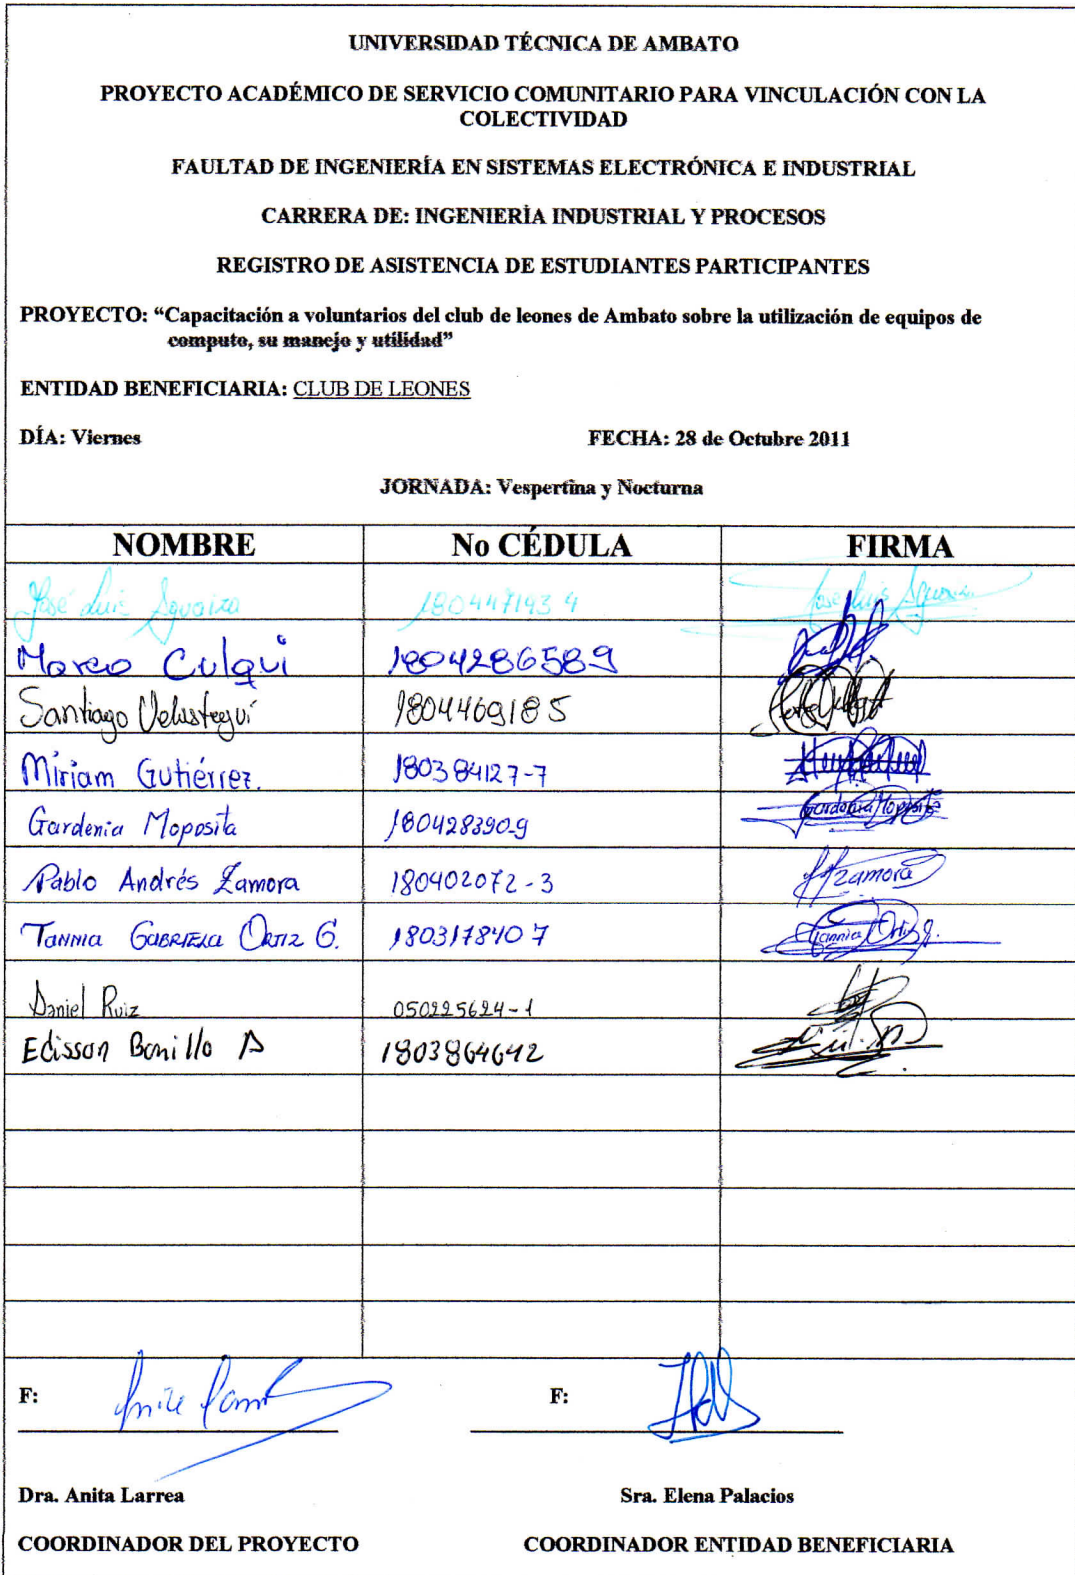 UNIVERSIDAD TÉCNICA DE AMBATO
PROYECTO ACADÉMICO DE SERVICIO COMUNITARIO PARA VINCULACIÓN CON LA
COLECTIVIDAD
FAULTAD DE INGENIERÍA EN SISTEMAS ELECTRÓNICA E INDUSTRIAL
CARRERA DE: INGENIERÍA INDUSTRIAL Y PROCESOS
REGISTRO DE ASISTENCIA DE ESTUDIANTES PARTICIPANTES
PROYECTO: “Capacitación a voluntarios del club de leones de Ambato sobre la utilización de equipos de
computo, su manejo y utilidad”
ENTIDAD BENEFICIARIA: CLUB DE LEONES
DÍA: Viernes FECHA: 28 de Octubre 2011
JORNADA: Vespertina y Nocturna
NOMBRE No CÉDULA FIRMA
José Luis 180447193 4 José Luis
Marco Culqui 1804286589
Santiago Velasteguí 1804469185
Miriam Gutiérrez. 180384127-7
Gardenia Moposita 180428390-9 Gardenia Moposita
Pablo Andrés Zamora 180402072-3 Zamora
Tannia Gabriela Ortiz G. 180317840 7 Tannia Ortiz G.
Daniel Ruiz 050225624-1
Edisson Bonillo 1803864642
F: F:
Dra. Anita Larrea Sra. Elena Palacios
COORDINADOR DEL PROYECTO COORDINADOR ENTIDAD BENEFICIARIA